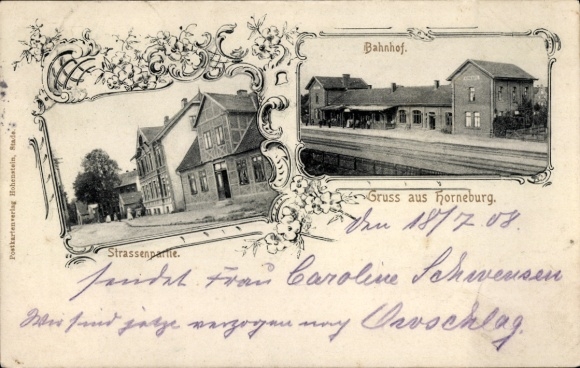 Bahnhof.
Strassenpartie.
Gruss aus Horneburg.
Postkartenverlag Hohenstein, Stade.
Den 18/7 08.
sendet Frau Caroline Schwensen
Wir sind jetze verzogen nach